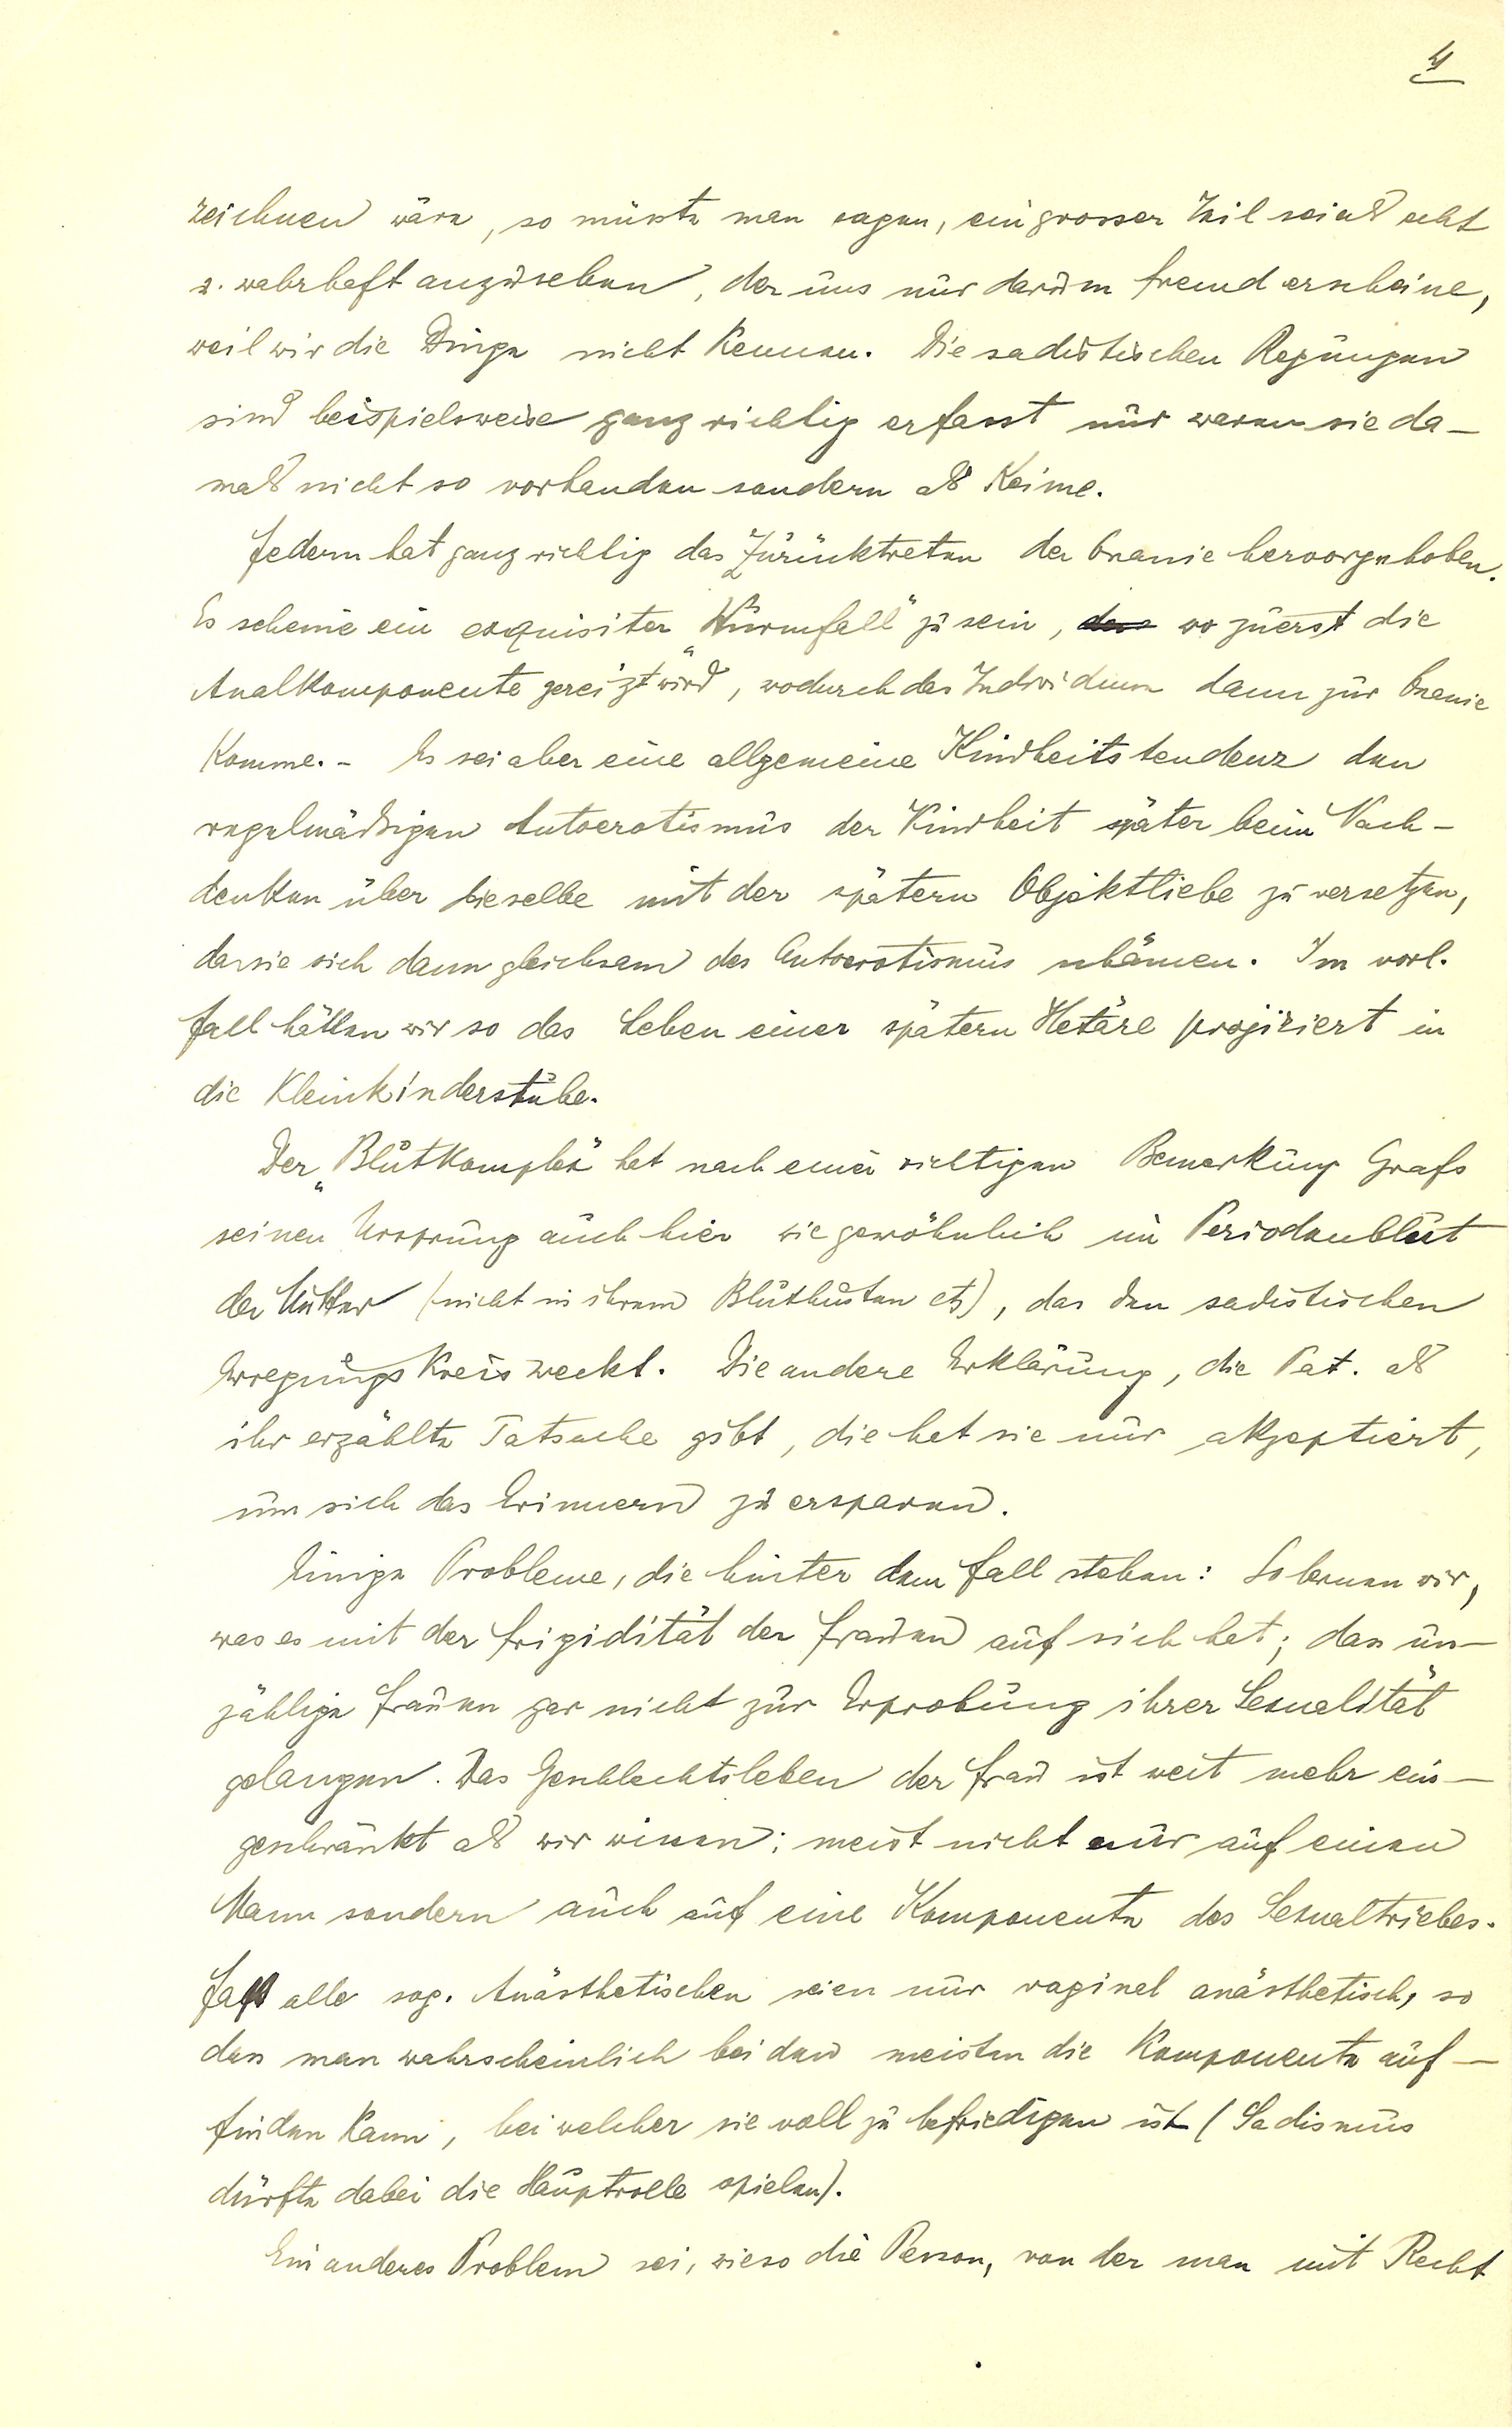 4
zeichnen wäre, so müsste man sagen, ein grosser Teil sei als echt
u. wahrhaft anzusehen, der uns nur darum fremd erscheine,
weil wir die Dinge nicht kennen. Die sadistischen Regungen
sind beispielsweise ganz richtig erfasst nur waren sie da-
mals nicht so vorhanden sondern als Keime.
Federn hat ganz richtig das Zurücktreten der Onanie hervorgehoben.
Es scheine ein exquisiter „Wurmfall" zu sein, wo zuerst die
Analkomponente gereizt wird, wodurch das Individuum dann zur Onanie
komme. - Es sei aber eine allgemeine Kindheitstendenz den
regelmässigen Autoerotismus der Kindheit später beim Nach-
denken über dieselbe mit der spätern Objektliebe zu versetzen,
da sie sich dann gleichsam des Autoerotismus schämen. Im vorl.
Fall hätten wir so das Leben einer spätern Hetäre projiziert in
die Kleinkinderstube.
Der „Blutkomplex" hat nach einer richtigen Bemerkung Grafs
seinen Ursprung auch hier wie gewöhnlich im Periodenblut
der Mutter (nicht in ihrem Bluthusten etz), das den sadistischen
Erregungskreis weckt. Die andere Erklärung, die Pat. als
ihr erzählte Tatsache gibt, die hat sie nur akzeptiert,
um sich das Erinnern zu ersparen.
Einige Probleme, die hinter dem Fall stehen: So lernen wir,
was es mit der Frigidität der Frauen auf sich hat; dass un-
zählige Frauen gar nicht zur Erprobung ihrer Sexualität
gelangen. Das Geschlechtsleben der Frau ist weit mehr ein-
geschränkt als wir wissen: meist nicht nur auf einen
Mann sondern auch auf eine Komponente des Sexualtriebes.
Fast alle sog. Anästhetischen seien nur vaginal anästhetisch, so
dass man wahrscheinlich bei den meisten die Komponente auf-
finden kann, bei welcher sie voll zu befriedigen ist (Sadismus
dürfte dabei die Hauptrolle spielen).
Ein anderes Problem sei, wieso die Person, von der man mit Recht